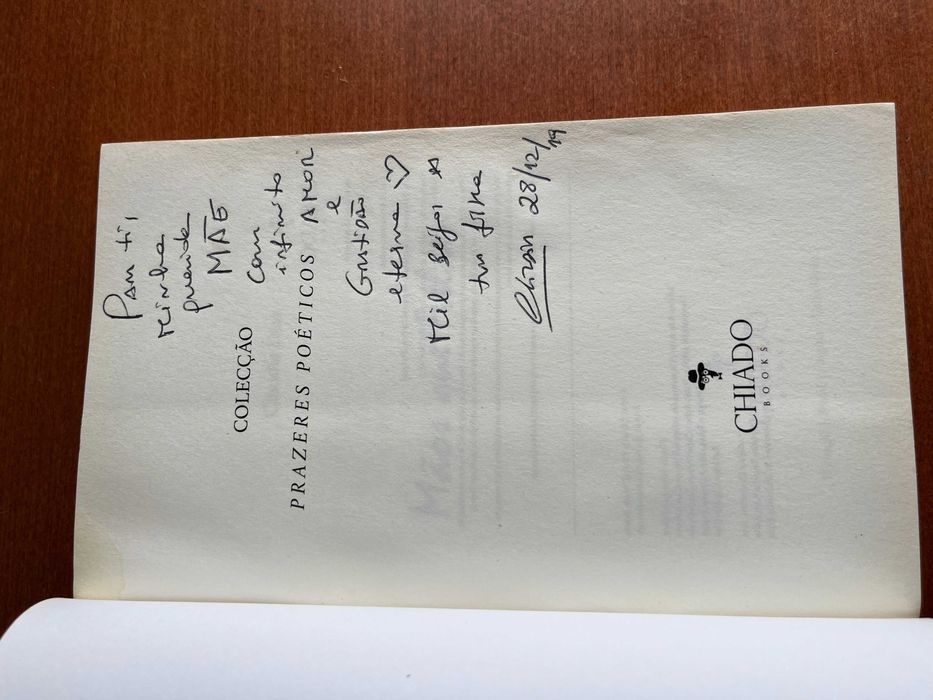 PARA ti,
minha
querida
MÃE
COLECÇÃO
com
infinito
PRAZERES POÉTICOS
AMOR
e
Gratidão
eterna ♡
Mil beijos da
tua filha
28/12/19
CHIADO
BOOKS